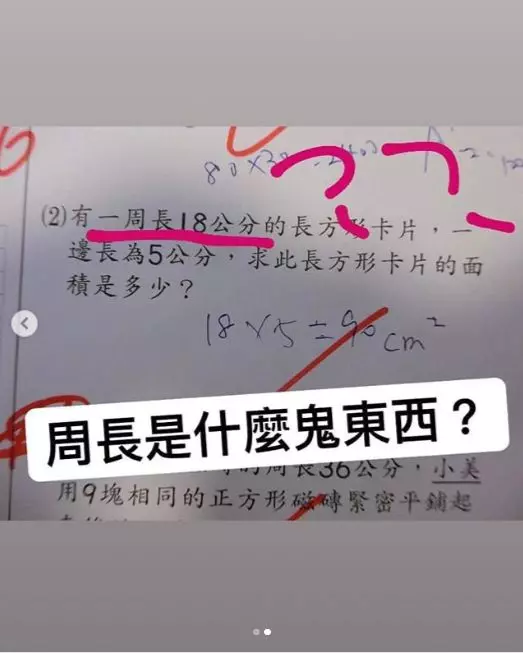 ？？
(2)有一周長18公分的長方形卡片，一
邊長為5公分，求此長方形卡片的面
積是多少？
18×5=90 cm²
周長是什麼鬼東西？
的周長36公分，小美
用9塊相同的正方形磁磚緊密平鋪起